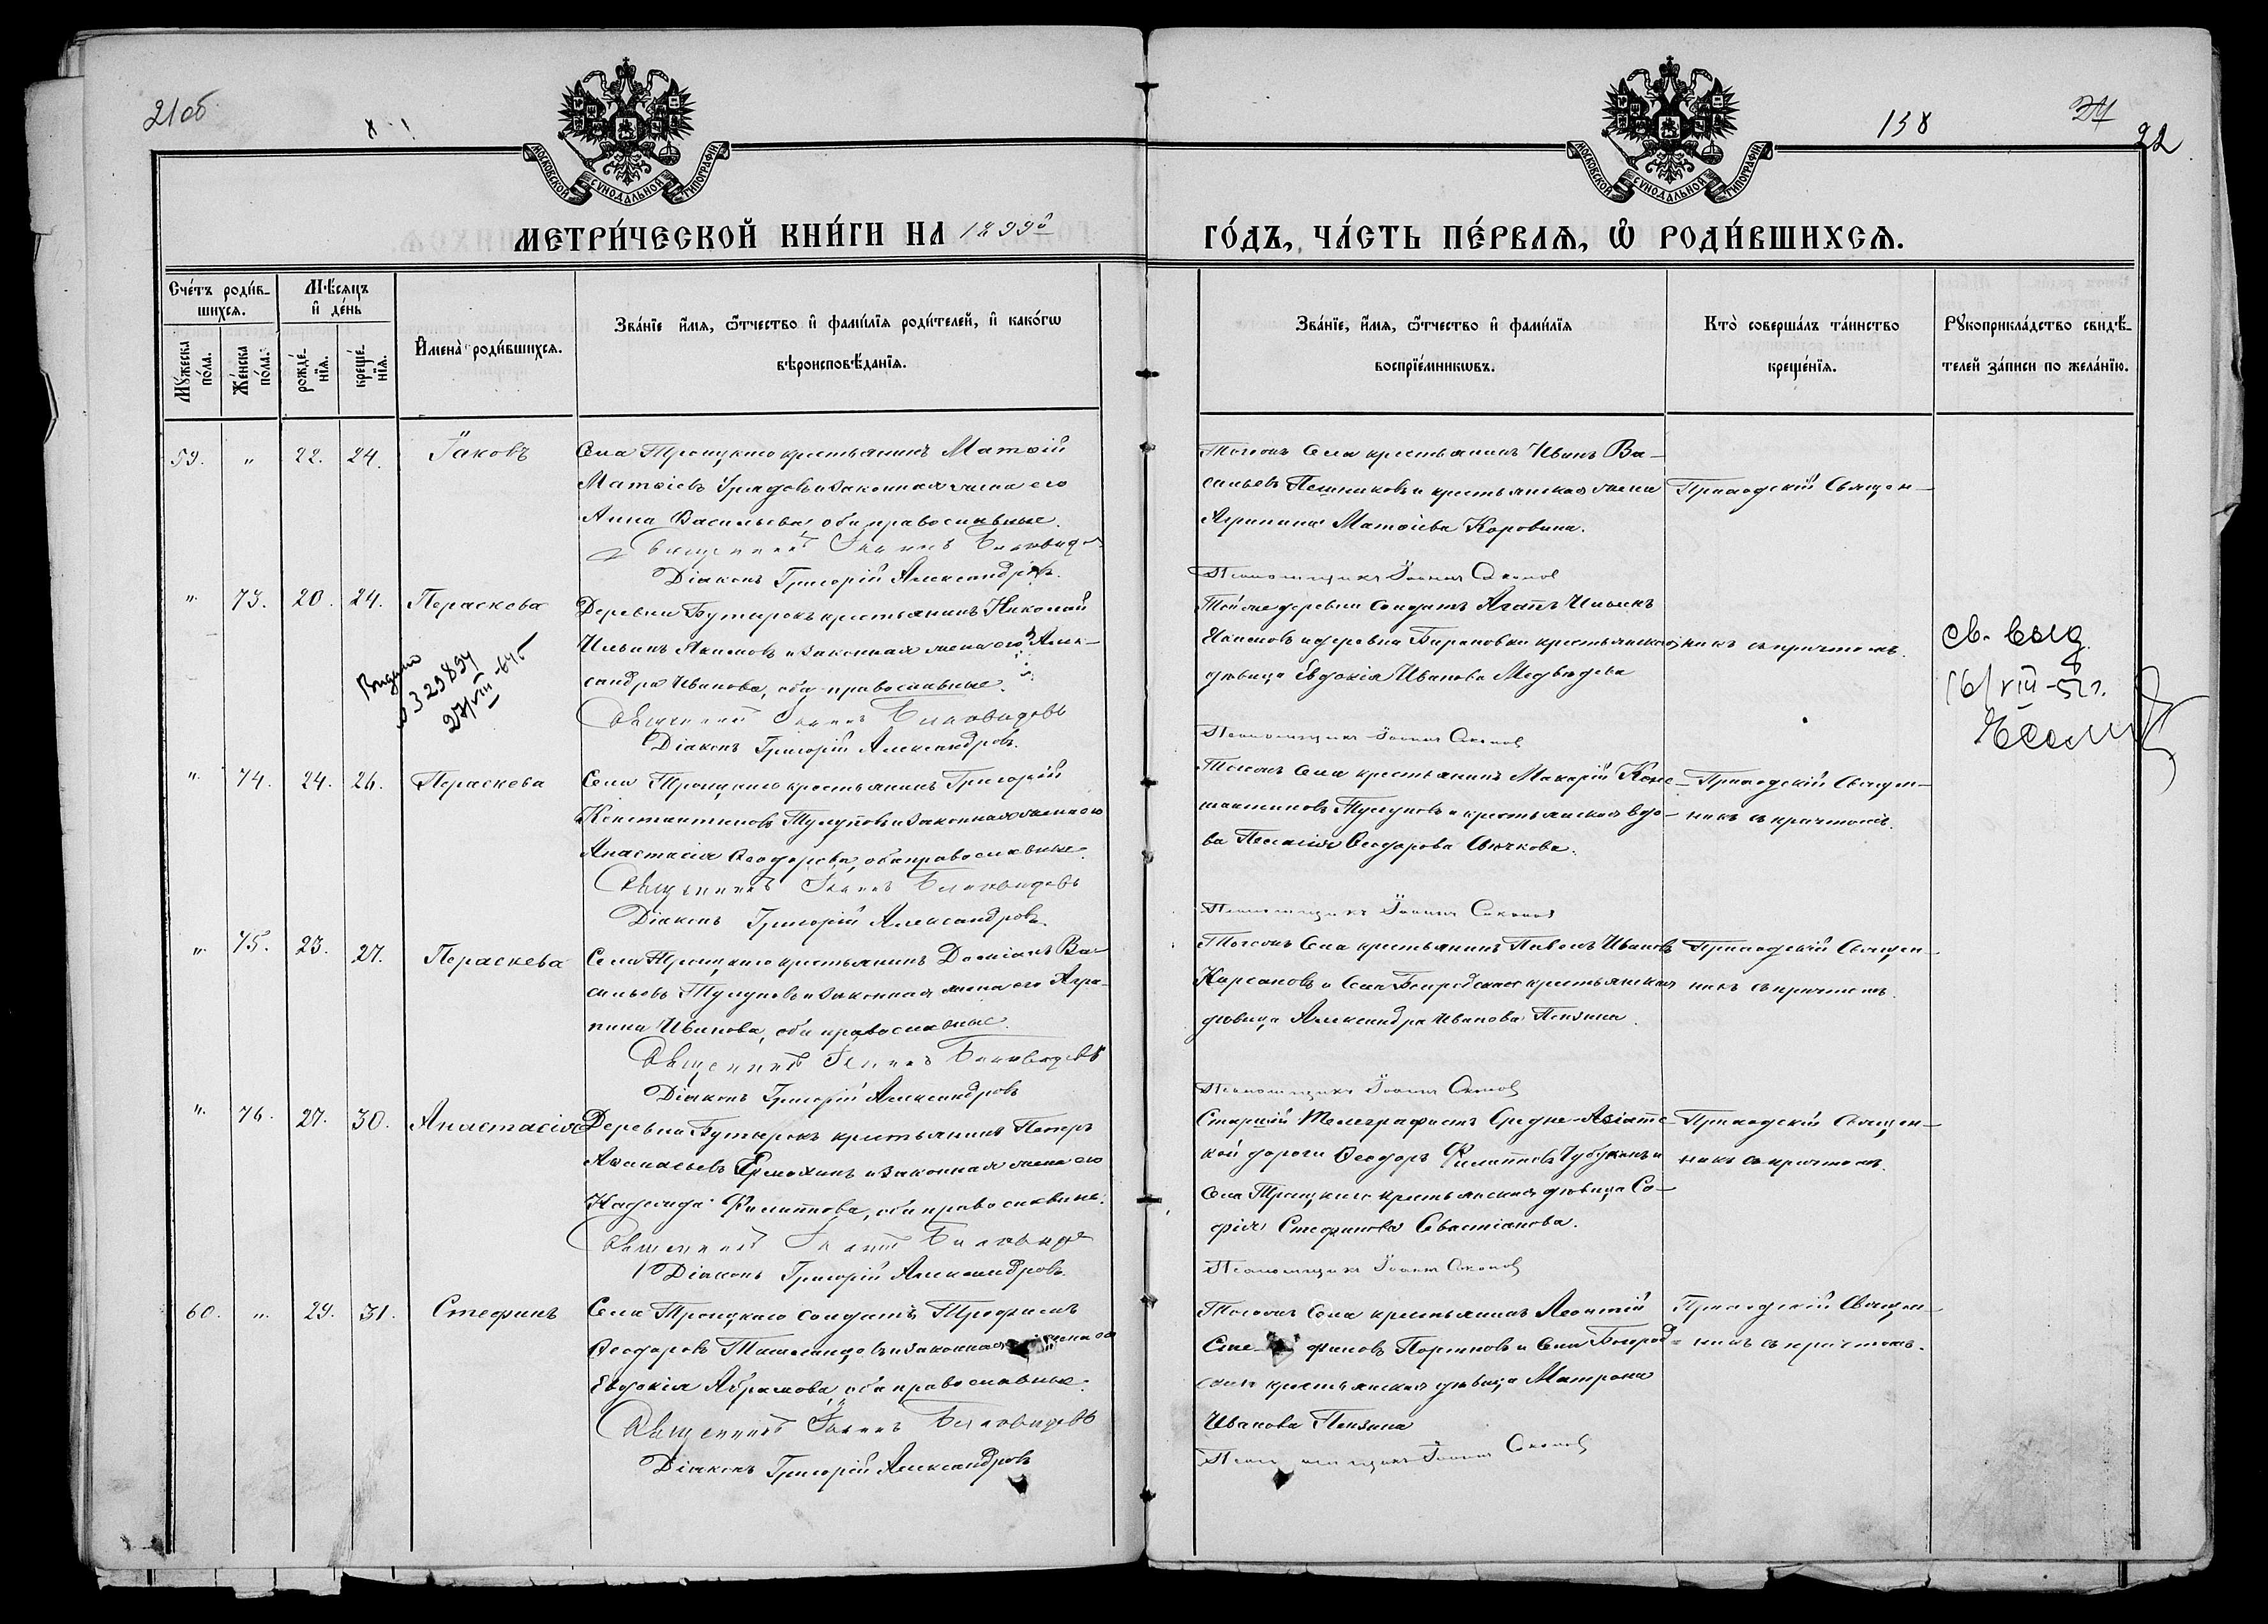 21об
138
22
МОСКОВСКОЙ СѴНОДАЛЬНОЙ ТИПОГРАФІИ
МОСКОВСКОЙ СѴНОДАЛЬНОЙ ТИПОГРАФІИ
МЕТРИ́ЧЕСКОЙ КНИ́ГИ НА 1899й
ГО́ДЪ, ЧА́СТЬ ПЕ́РВАѦ, Ѽ РОДИ́ВШИХСѦ.
Сче́тъ роди́в-
шихсѧ.
Мꙋ́жеска по́ла.
Же́нска по́ла.
Мѣ́сяцъ
и҆ де́нь
рожде́-
нїѧ.
креще́-
нїѧ.
И҆мена̀ роди́вшихсѧ.
Зва́нїе и҆́мѧ, ѻ҆́тчество и҆ фами́лїѧ роди́телей, и҆ како́гѡ
вѣроисповѣ́данїѧ.
Зва́нїе, и҆́мѧ, ѻ҆́тчество и҆ фами́лїѧ
воспрїе́мникѡвъ.
Кто̀ соверша́лъ та́инство
креще́нїѧ.
Рꙋкоприкла́дство свидѣ́-
телей за́писи по жела́нїю.
59. " 22. 24. Іаковъ
Села Троицкаго крестьянинъ Матѳій
Матѳіевъ Грядовъ и законная жена его
Анна Васильева, оба православные.
Священникъ Іоаннъ Бѣловидовъ
Діаконъ Григорій Александровъ.
Тогоже села крестьянинъ Иванъ Ва-
сильевъ Пешниковъ и крестьянская жена
Агрипина Матѳіева Коровина.
Псаломщикъ Іоаннъ Соколов
Приходскій Священ-
никъ съ причтомъ.
" 73. 20. 24. Параскева
Деревни Бутырокъ крестьянинъ Николай
Ильинъ Якимовъ и законная жена его Алек-
сандра Иванова, оба православные.
Священникъ Іоаннъ Бѣловидовъ
Діаконъ Григорій Александровъ.
Тойже деревни солдатъ Агапъ Ильинъ
Якимовъ и деревни Бирюковки крестьянская
дѣвица Евдокія Иванова Медвѣдева
Псаломщикъ Іоаннъ Соколов
Видано
№ 329894
27/VIII-64б
св. выд.
16/VIII-52 г.
" 74. 24. 26. Параскева
Села Троицкаго крестьянинъ Григорій
Константиновъ Тулуповъ и законная жена его
Анастасія Ѳеодорова, оба православные.
Священникъ Іоаннъ Бѣловидовъ
Діаконъ Григорій Александровъ.
Тогоже села крестьянинъ Макарій Кон-
стантиновъ Тулуповъ и крестьянская вдо-
ва Пелагія Ѳеодорова Сычкова.
Псаломщикъ Іоаннъ Соколов
Приходскій Священ-
никъ съ причтомъ.
" 75. 23. 27. Параскева
Села Троицкаго крестьянинъ Даміанъ Ва-
сильевъ Тулуповъ и законная жена его Агри-
пина Иванова, оба православные.
Священникъ Іоаннъ Бѣловидовъ
Діаконъ Григорій Александровъ
Тогоже села крестьянинъ Павелъ Ивановъ
Кирсановъ и села крестьянская
дѣвица Александра Иванова Пензина.
Псаломщикъ Іоаннъ Соколов
Приходскій Священ-
никъ съ причтомъ.
" 76. 27. 30. Анастасія
Деревни Бутырокъ крестьянинъ Петръ
Аѳанасьевъ Ермохинъ и законная жена его
Надежда Филиппова, оба православные.
Священникъ Іоаннъ Бѣловидовъ
Діаконъ Григорій Александровъ.
Старшій телеграфистъ Средне-Азіатс-
кой дороги Ѳеодоръ Филипповъ и
села Троицкаго крестьянская дѣвица Со-
фія Стефанова Севастіанова.
Псаломщикъ Іоаннъ Соколов
Приходскій Священ-
никъ съ причтомъ.
60. " 29. 31. Стефанъ
Села Троицкаго солдатъ Трофимъ
Ѳеодоровъ и законная жена его
Евдокія Абрамова, оба православные.
Священникъ Іоаннъ Бѣловидовъ
Діаконъ Григорій Александровъ
Тогоже села крестьянинъ Леонтій
Сте-фановъ Портновъ и села
крестьянская дѣвица Матрона
Иванова Пензина
Псаломщикъ Іоаннъ Соколов
Приходскій Священ-
никъ съ причтомъ.